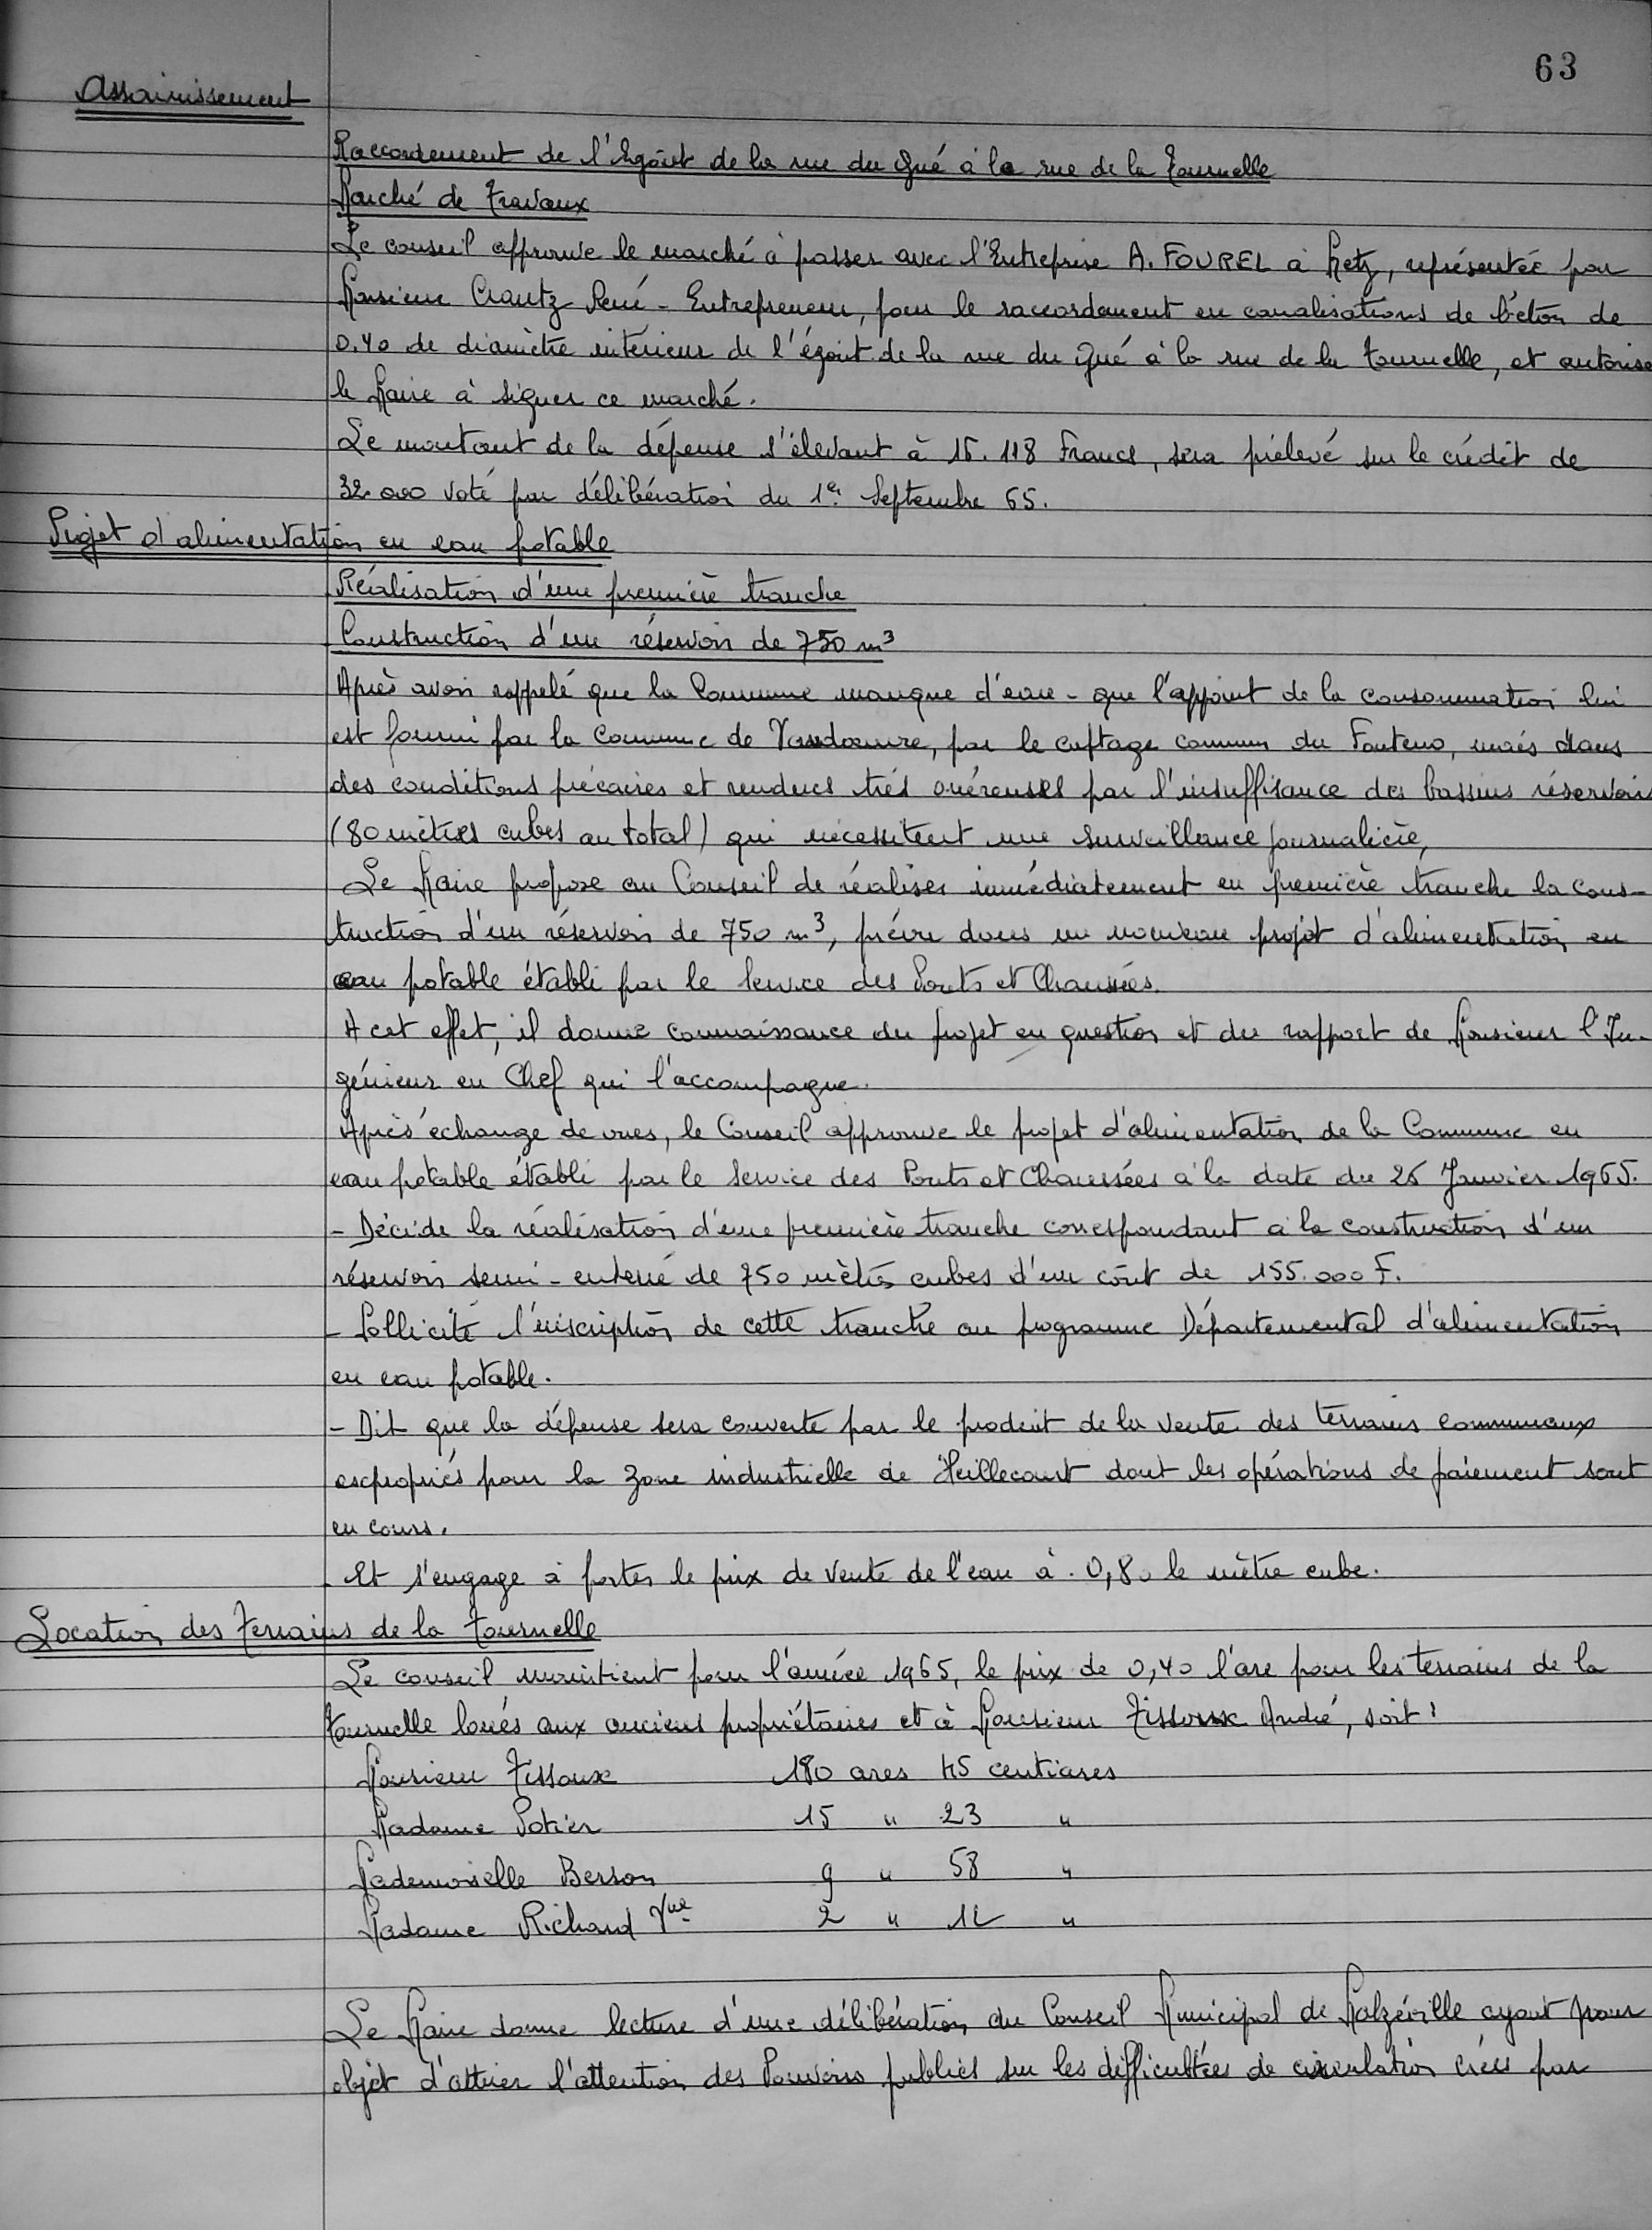 63
Assainissement
Raccordement de l'Egoût de la rue du Gué à la rue de la Tournelle
Marché de Travaux
Le conseil approuve le marché à passer avec l'Entreprise A. FOUREL à Metz, représentée par
Monsieur Crautz René - Entrepreneur, pour le raccordement en canalisations de béton de
0.40 de diamètre intérieur de l'égout de la rue du Gué à la rue de la Tournelle, et autorise
le Maire à signer ce marché.
Le montant de la dépense s'élevant à 15.118 Francs, sera prélevé sur le crédit de
32.000 voté par délibération du 1er Septembre 65.
Projet d'alimentation en eau potable
Réalisation d'une première tranche
Construction d'un réservoir de 750 m³
Après avoir rappelé que la Commune manque d'eau - que l'appoint de la consommation lui
est fourni par la Commune de Vandoeuvre, par le captage commun du Fonteno, mais dans
des conditions précaires et rendues très onéreuses par l'insuffisance des bassins réservoirs
(80 mètres cubes au total) qui nécessitent une surveillance journalière,
Le Maire propose au Conseil de réaliser immédiatement en première tranche la cons-
truction d'un réservoir de 750 m³, prévu dans un nouveau projet d'alimentation en
eau potable établi par le Service des Ponts et Chaussées.
A cet effet, il donne connaissance du projet en question et du rapport de Monsieur l'In-
génieur en Chef qui l'accompagne.
Après échange de vues, le Conseil approuve le projet d'alimentation de la Commune en
eau potable établi par le Service des Ponts et Chaussées à la date du 26 Janvier 1965.
- Décide la réalisation d'une première tranche correspondant à la construction d'un
réservoir semi-enterré de 750 mètres cubes d'un coût de 155.000 F.
- Sollicite l'inscription de cette tranche au programme Départemental d'alimentation
en eau potable.
- Dit que la dépense sera couverte par le produit de la vente des terrains communaux
expropriés pour la zone industrielle de Heillecourt dont les opérations de paiement sont
en cours.
- Et s'engage à porter le prix de vente de l'eau à 0,80 le mètre cube.
Location des Terrains de la Tournelle
Le conseil maintient pour l'année 1965, le prix de 0,40 l'are pour les terrains de la
Tournelle loués aux anciens propriétaires et à Monsieur Tissoux André, soit :
Monsieur Tissoux 180 ares 45 centiares
Madame Potier 15 " 23 "
Mademoiselle Berson 9 " 58 "
Madame Richard Vve 2 " 12 "
Le Maire donne lecture d'une délibération du Conseil Municipal de Malzéville ayant pour
objet d'attirer l'attention des Pouvoirs publics sur les difficultées de circulation créés par